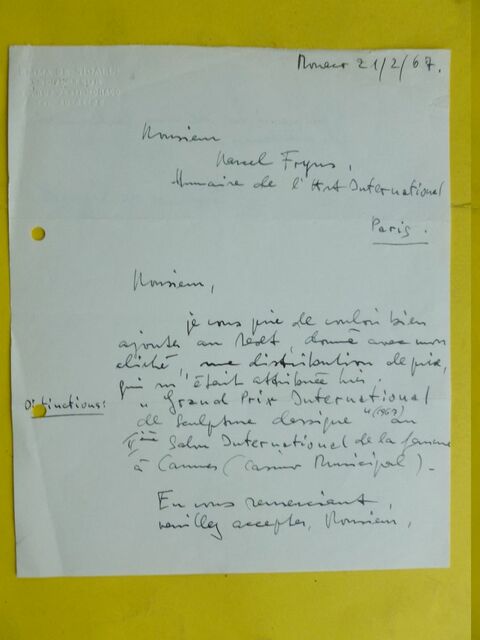 Monaco 21/2/67.
Monsieur
Marcel Fryns,
Annuaire de l'Art International
Paris.
Monsieur,
je vous prie de vouloir bien
ajouter au text, donné avec mon
cliché, une distribution de prix,
qui m'était attribuée hier.
Distinctions:
"Grand Prix International
de Sculpture classique" (1967) au
Salon International de la femme
à Cannes (Casino Municipal).
En vous remerciant,
veuillez accepter, Monsieur,